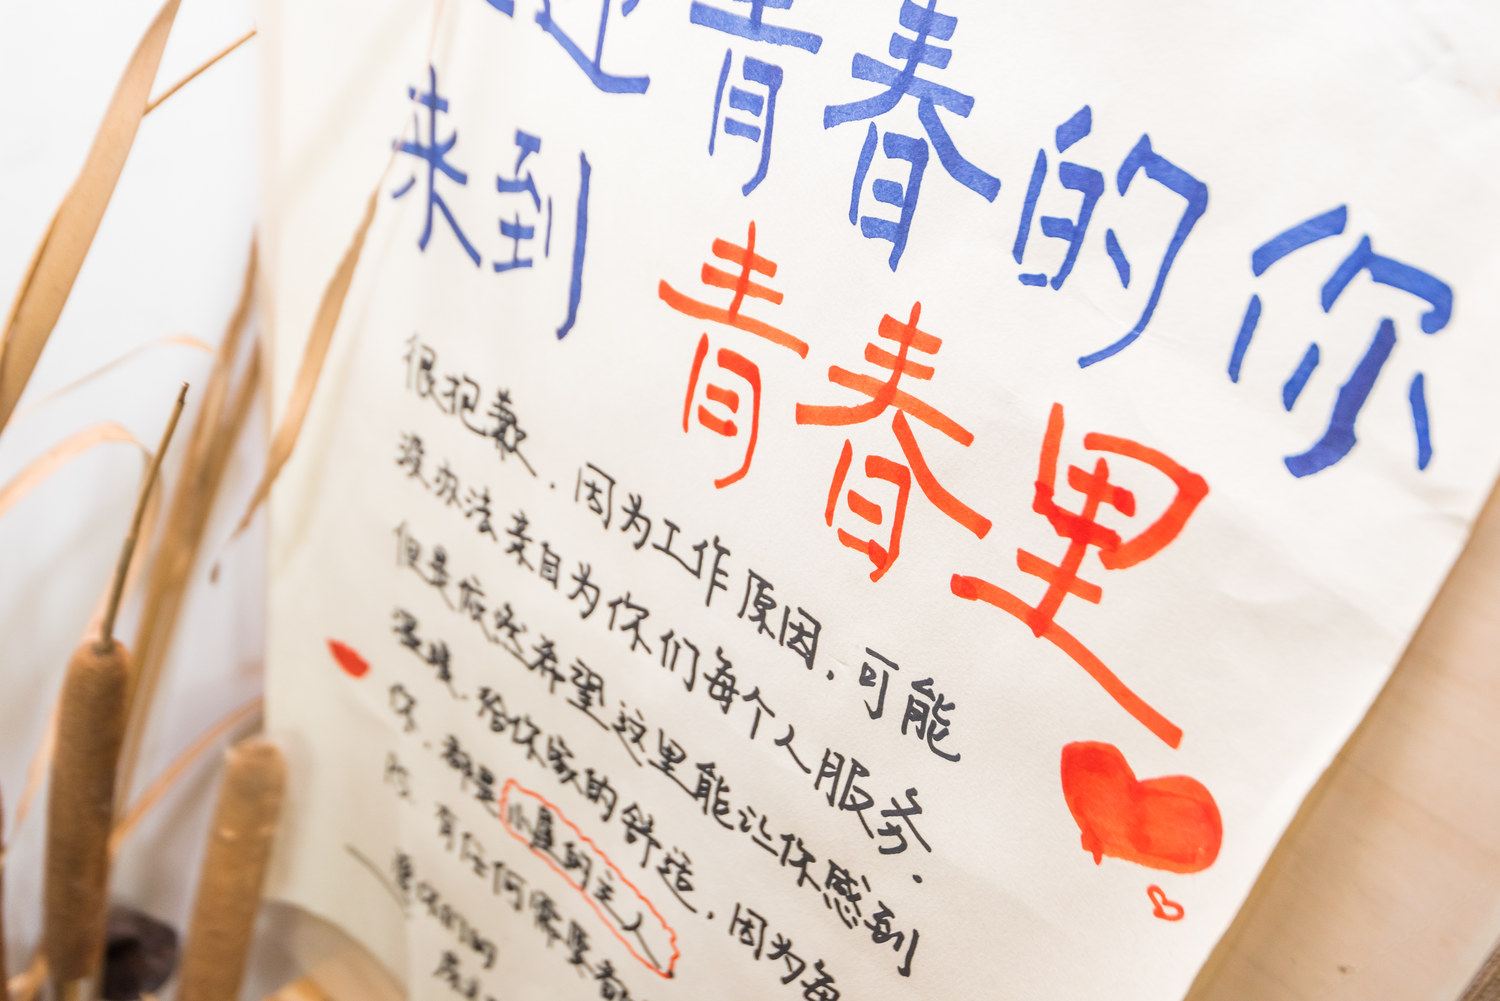 迎青春的你
来到
青春里
很抱歉，因为工作原因，可能
没办法亲自为你们每个人服务.
但是依然希望这里能让你感到
温暖，给你家的舒适，因为每
都是小屋的主人
PS. 有任何需要都